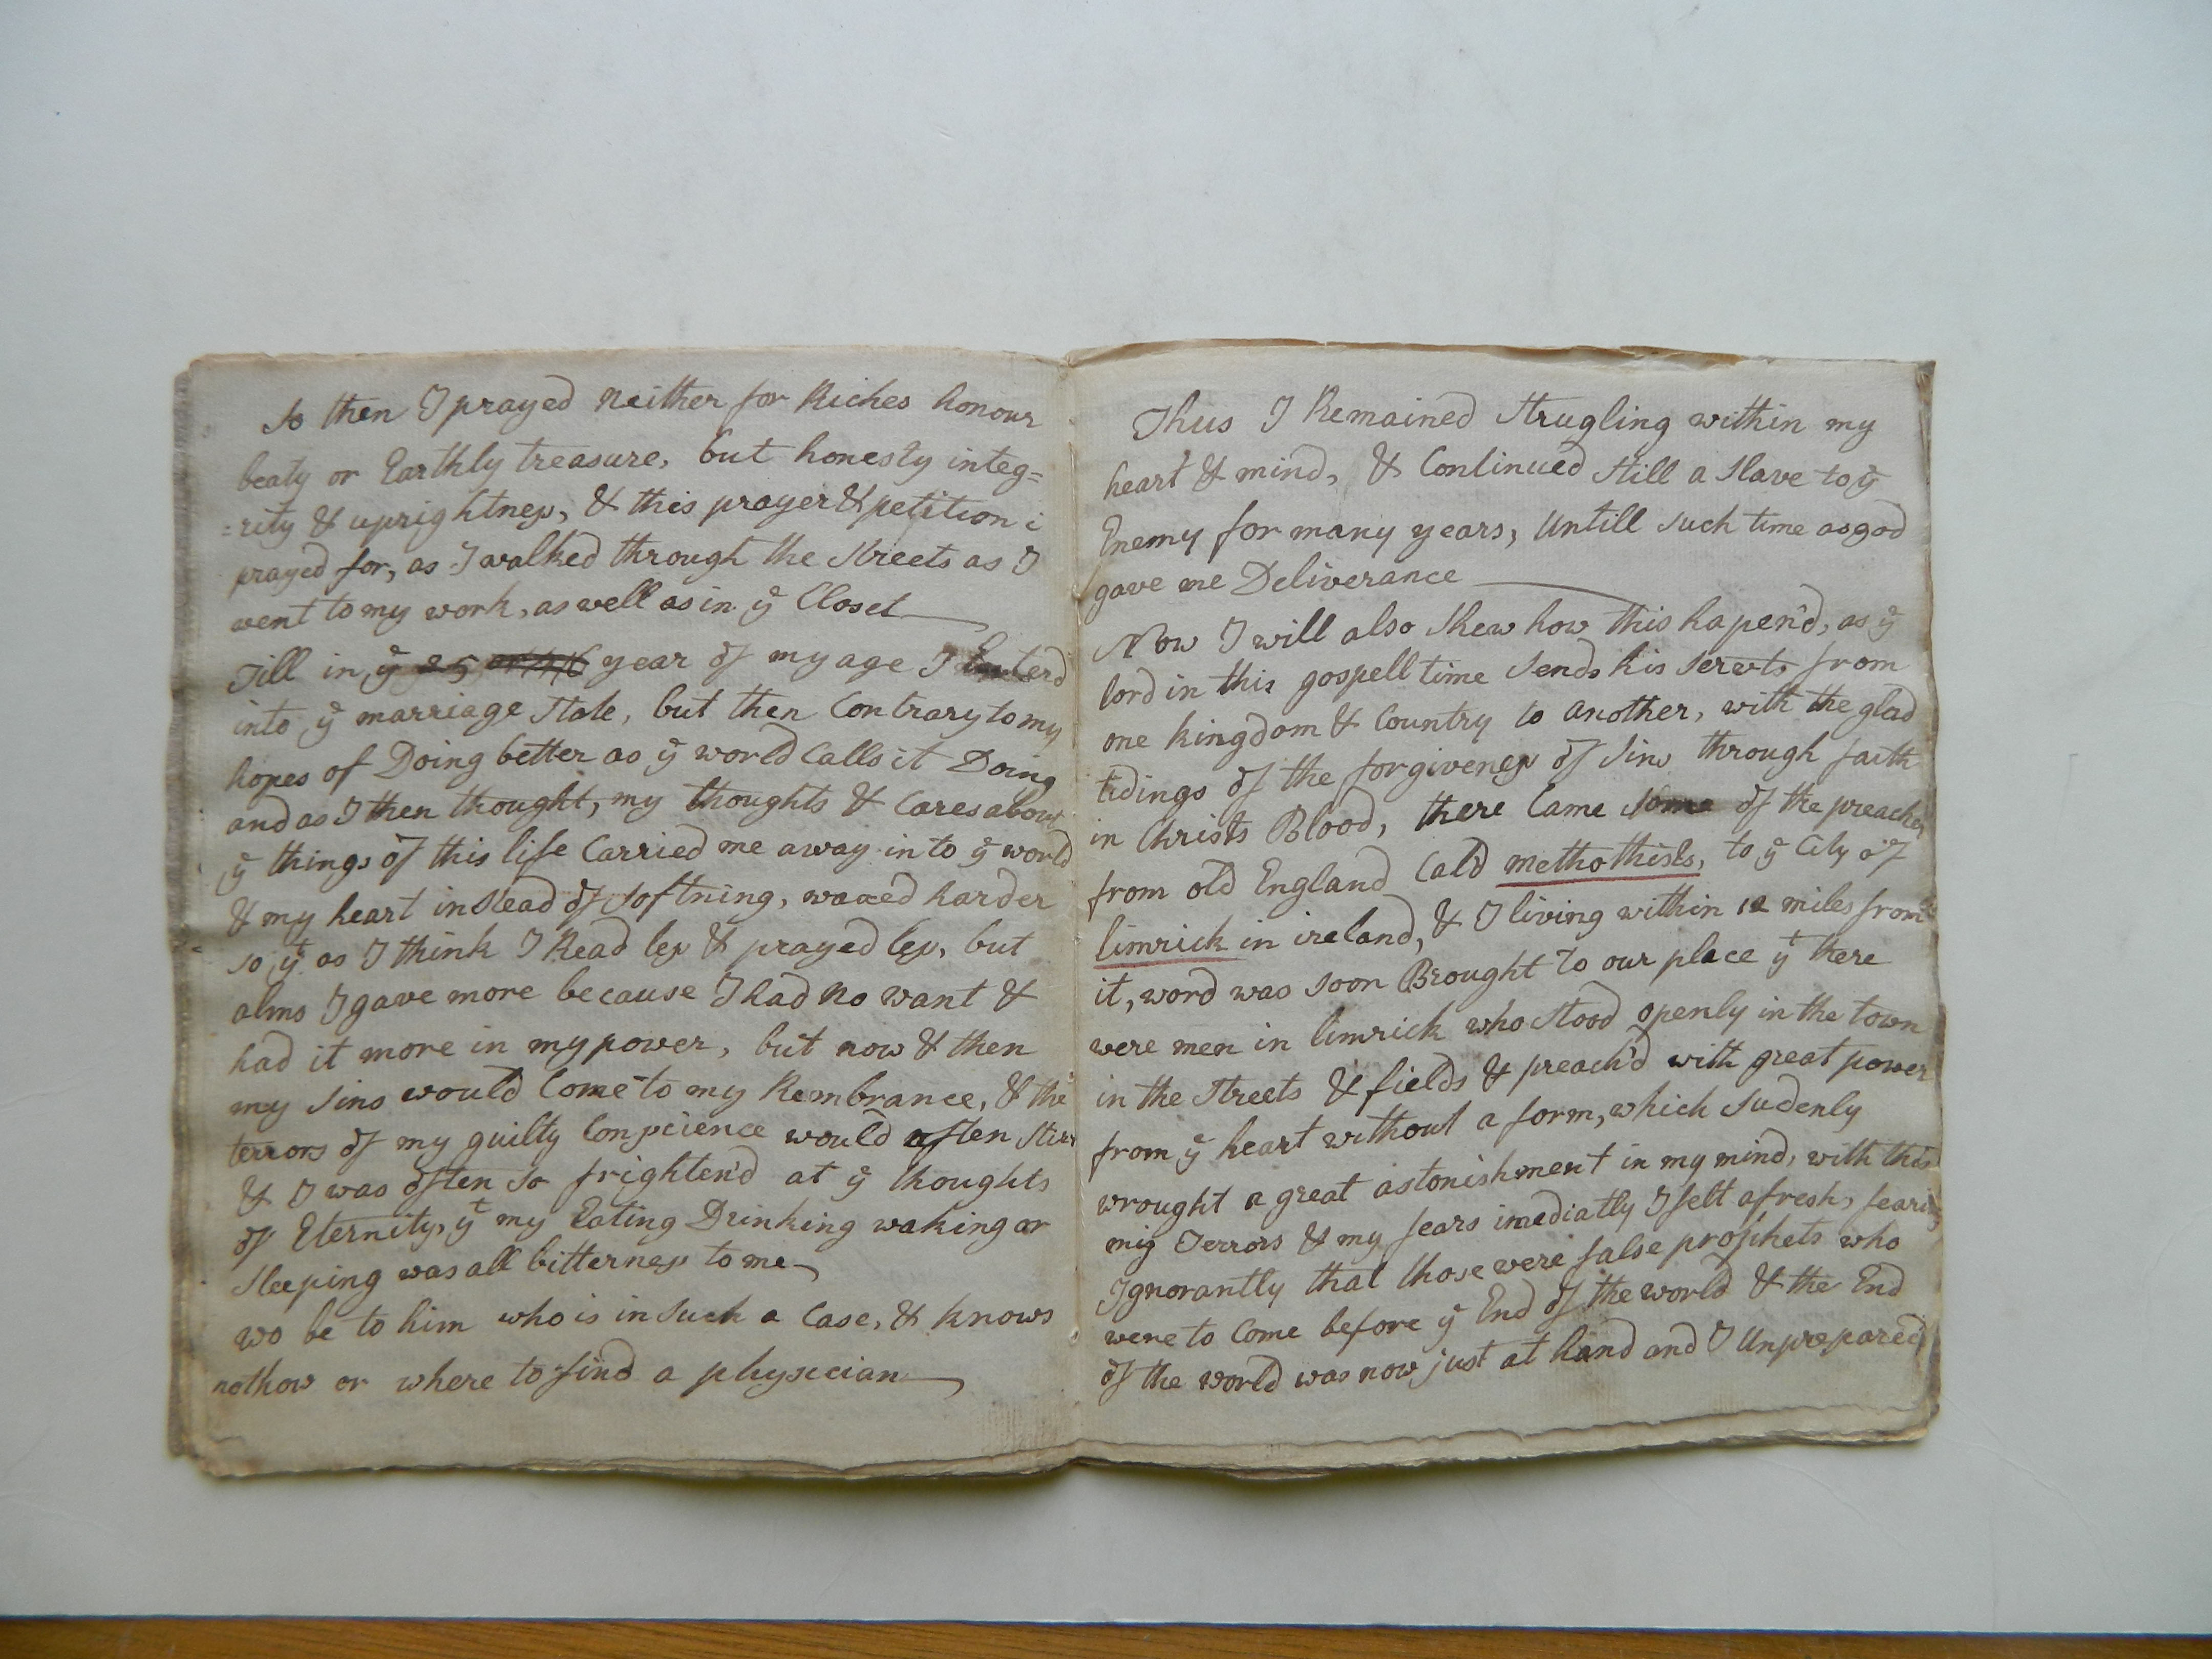 So then I prayed Neither for Riches honour
beaty or Earthly treasure, but honesty integ=
=rity & uprightness, & this prayer & petition i
prayed for, as I walked through the Streets as I
went to my work, as well as in ye Closet
Till in ye year of my age I Enterd
into ye marriage State, but then Contrary to my
hopes of Doing better as ye world Calls it Doing
and as I then thought, my thoughts & Cares about
ye things of this life Carried me away into ye world
& my heart instead of softning, waxed harder
so yt as I think I Read less & prayed less, but
alms I gave more because I had No want &
had it more in my power, but now & then
my Sins would Come to my Rembrance, & the
terrors of my guilty Conscience would often Stirr
& I was often so frighten'd at ye thoughts
of Eternity, yt my Eating Drinking waking or
Sleeping was all bitterness to me
wo be to him who is in Such a Case, & knows
not how or where to find a physician
Thus I Remained Strugling within my
heart & mind, & Continued Still a Slave to ye
Enemy for many years, Untill Such time as god
gave me Deliverance
Now I will also Shew how this hapen'd, as ye
lord in this gospell time Sends his Servts from
one kingdom & Country to another, with the glad
tidings of the forgiveness of Sins through faith
in Christs Blood, there Came Some of the preachers
from old England Call'd methothists, to ye City of
limrick in ireland, & I living within 12 miles from
it, word was soon Brought to our place yt there
were men in limrick who Stood openly in the town
in the Streets & fields & preach'd with great power
from ye heart without a form, which Sudenly
wrought a great astonishment in my mind, with this
my Terrors & my fears imediatly I felt afresh, fearing
Ignorantly that those were false prophets who
were to Come before ye End of the world & the End
of the world was now just at hand and I Unprepared